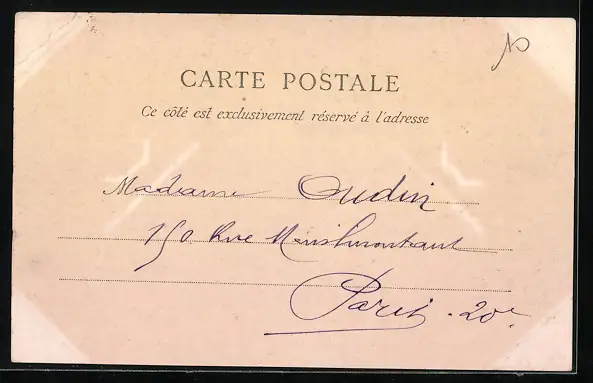 CARTE POSTALE
Ce côté est exclusivement réservé à l'adresse
Madame Oudin
150 Rue Menilmontant
Paris - 20e